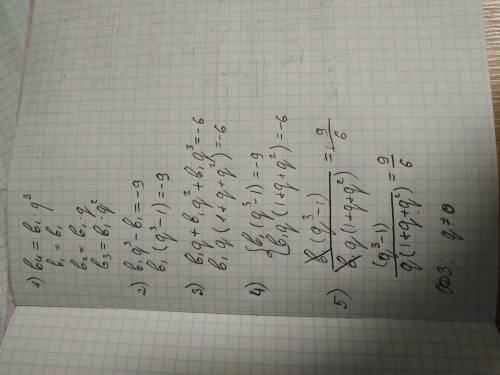 1) b₄ = b₁ · q³
b₁ = b₁
b₂ = b₁ · q
b₃ = b₁ · q²
2) b₁q³ - b₁ = -9
b₁ (q³ - 1) = -9
3) b₁q + b₁q² + b₁q³ = -6
b₁q (1 + q + q²) = -6
4) { b₁ (q³ - 1) = -9
b₁q (1 + q + q²) = -6
5) b₁ (q³ - 1) / b₁ q (1 + q + q²) = 9/6
(q³ - 1) / q (1 + q + q²) = 9/6
ОДЗ: q ≠ 0